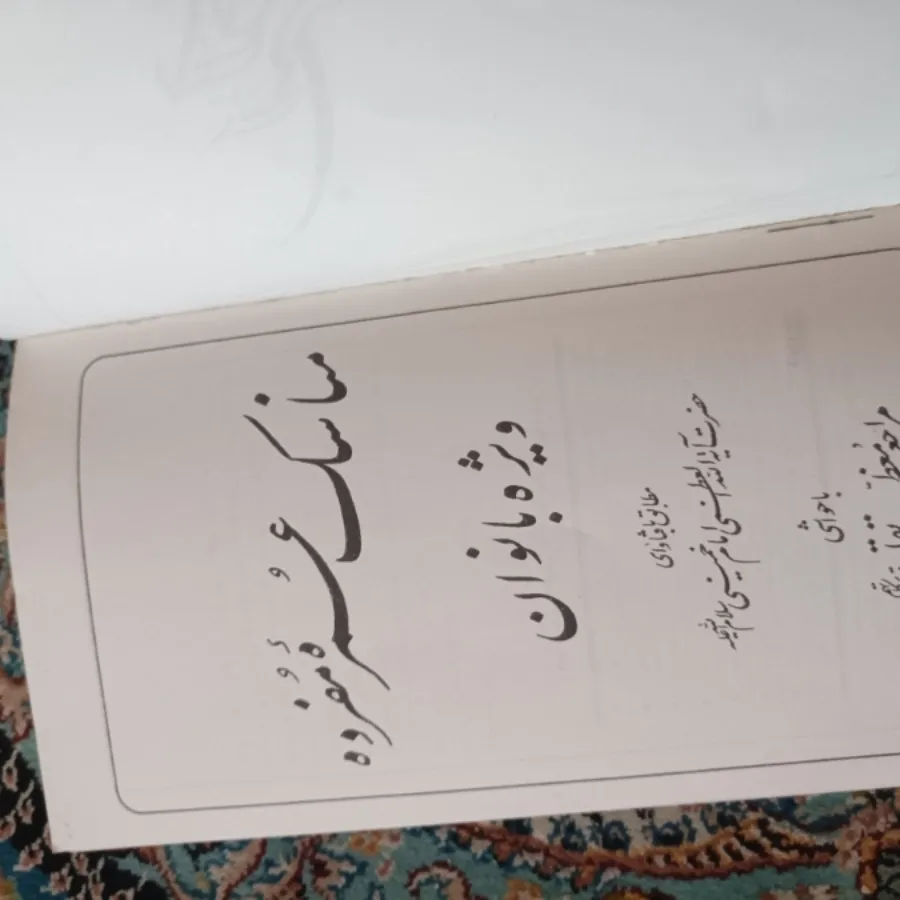 مناسک عُمرهٔ مُفرده
ویژه بانوان
مطابق با فتاوای
حضرت آیة الله العظمی امام خمینی سلام الله علیه
با حواشی
مراجع معظّم تقلید